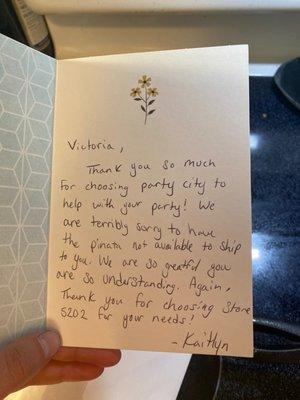 Victoria,
Thank you so much
for choosing party city to
help with your party! We
are terribly sorry to have
the pinata not available to ship
to you. We are so greatful you
are so understanding. Again,
Thank you for choosing Store
5202 for your needs!
- Kaitlyn